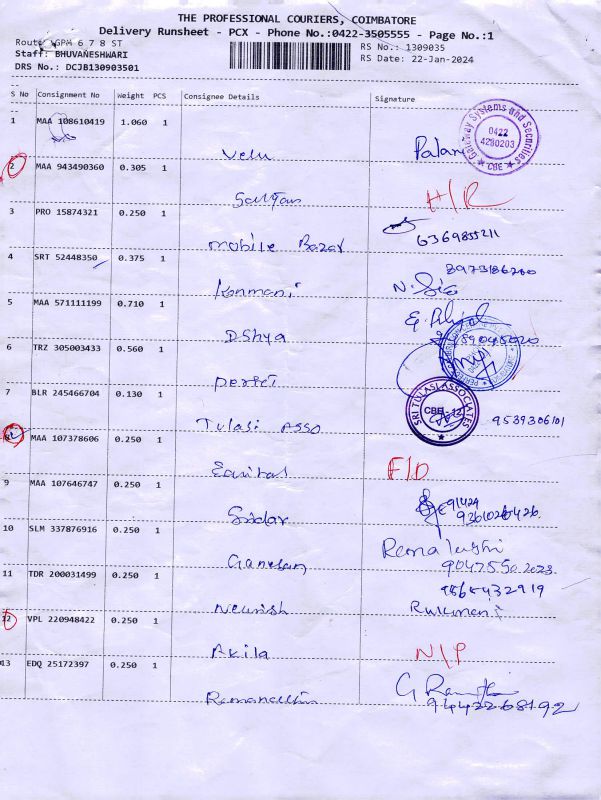 THE PROFESSIONAL COURIERS, COIMBATORE
Delivery Runsheet - PCX - Phone No.:0422-3505555 - Page No.:1
Route: GPM 6 7 8 ST
RS No.: 1309035
Staff: BHUVANESHWARI
RS Date: 22-Jan-2024
DRS No.: DCJB130903501
S No Consignment No Weight PCS Consignee Details Signature
1 MAA 108610419 1.060 1
Velu Palani
Gateway Systems and Securities
0422
4280203
CBE
2 MAA 943490360 0.305 1
H/R
3 PRO 15874321 0.250 1
mobile Bazar 6369855211
4 SRT 52448350 0.375 1
8973186200
Kanmani N.
5 MAA 571111199 0.710 1
D.Shya
6 TRZ 305003433 0.560 1
perfect
7 BLR 245466704 0.130 1
Tulasi ASSO 9539306101
SRI TULASI ASSOCIATES
CBE - 12
MAA 107378606 0.250 1
Equitas F/D
9 MAA 107646747 0.250 1
Sridar
10 SLM 337876916 0.250 1
Ganesan
11 TDR 200031499 0.250 1
Rukmani
12 VPL 220948422 0.250 1
Akila N/P
13 EDQ 25172397 0.250 1
9442268192